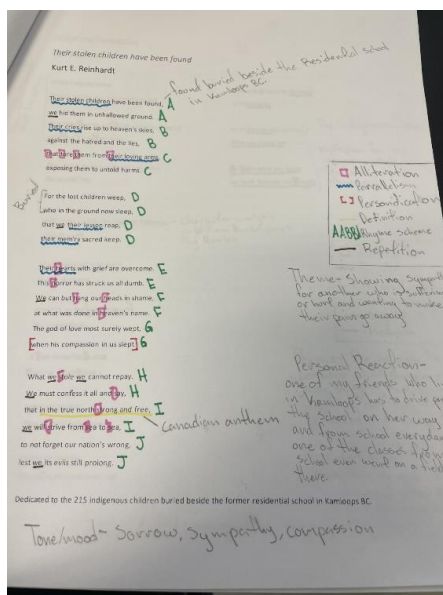 Their stolen children have been found
Kurt E. Reinhardt
found buried beside the Residential School
in Kamloops BC.
Their stolen children have been found, A
we hid them in unhallowed ground. A
Their cries rise up to heaven's skies, B
against the hatred and the lies, B
that tore them from their loving arms C
exposing them to untold harms. C
Buried
For the lost children weep, D
who in the ground now sleep, D
that we their lesson reap, D
their mem'ry sacred keep. D
Their hearts with grief are overcome. E
This horror has struck us all dumb. E
We can but hang our heads in shame, F
at what was done in heaven's name. F
The god of love most surely wept, G
when his compassion in us slept. G
What we stole we cannot repay, H
We must confess it all and pay, H
that in the true north strong and free, I
we will strive from sea to sea, I
Canadian anthem
to not forget our nation's wrong, J
lest we its evils still prolong. J
Alliteration
Parralelism
[ ] Personification
Definition
AABB Rhyme scheme
Repetition
Theme- Showing sympathy
for another who is suffering
or hurt and wanting to make
their pain go away
Personal Reaction-
one of my friends who
in Kamloops has to drive
the school on their way
and from school everyday
one of the classes from
school even went on a
there
Dedicated to the 215 indigenous children buried beside the former residential school in Kamloops BC.
Tone/mood- Sorrow, sympathy, compassion